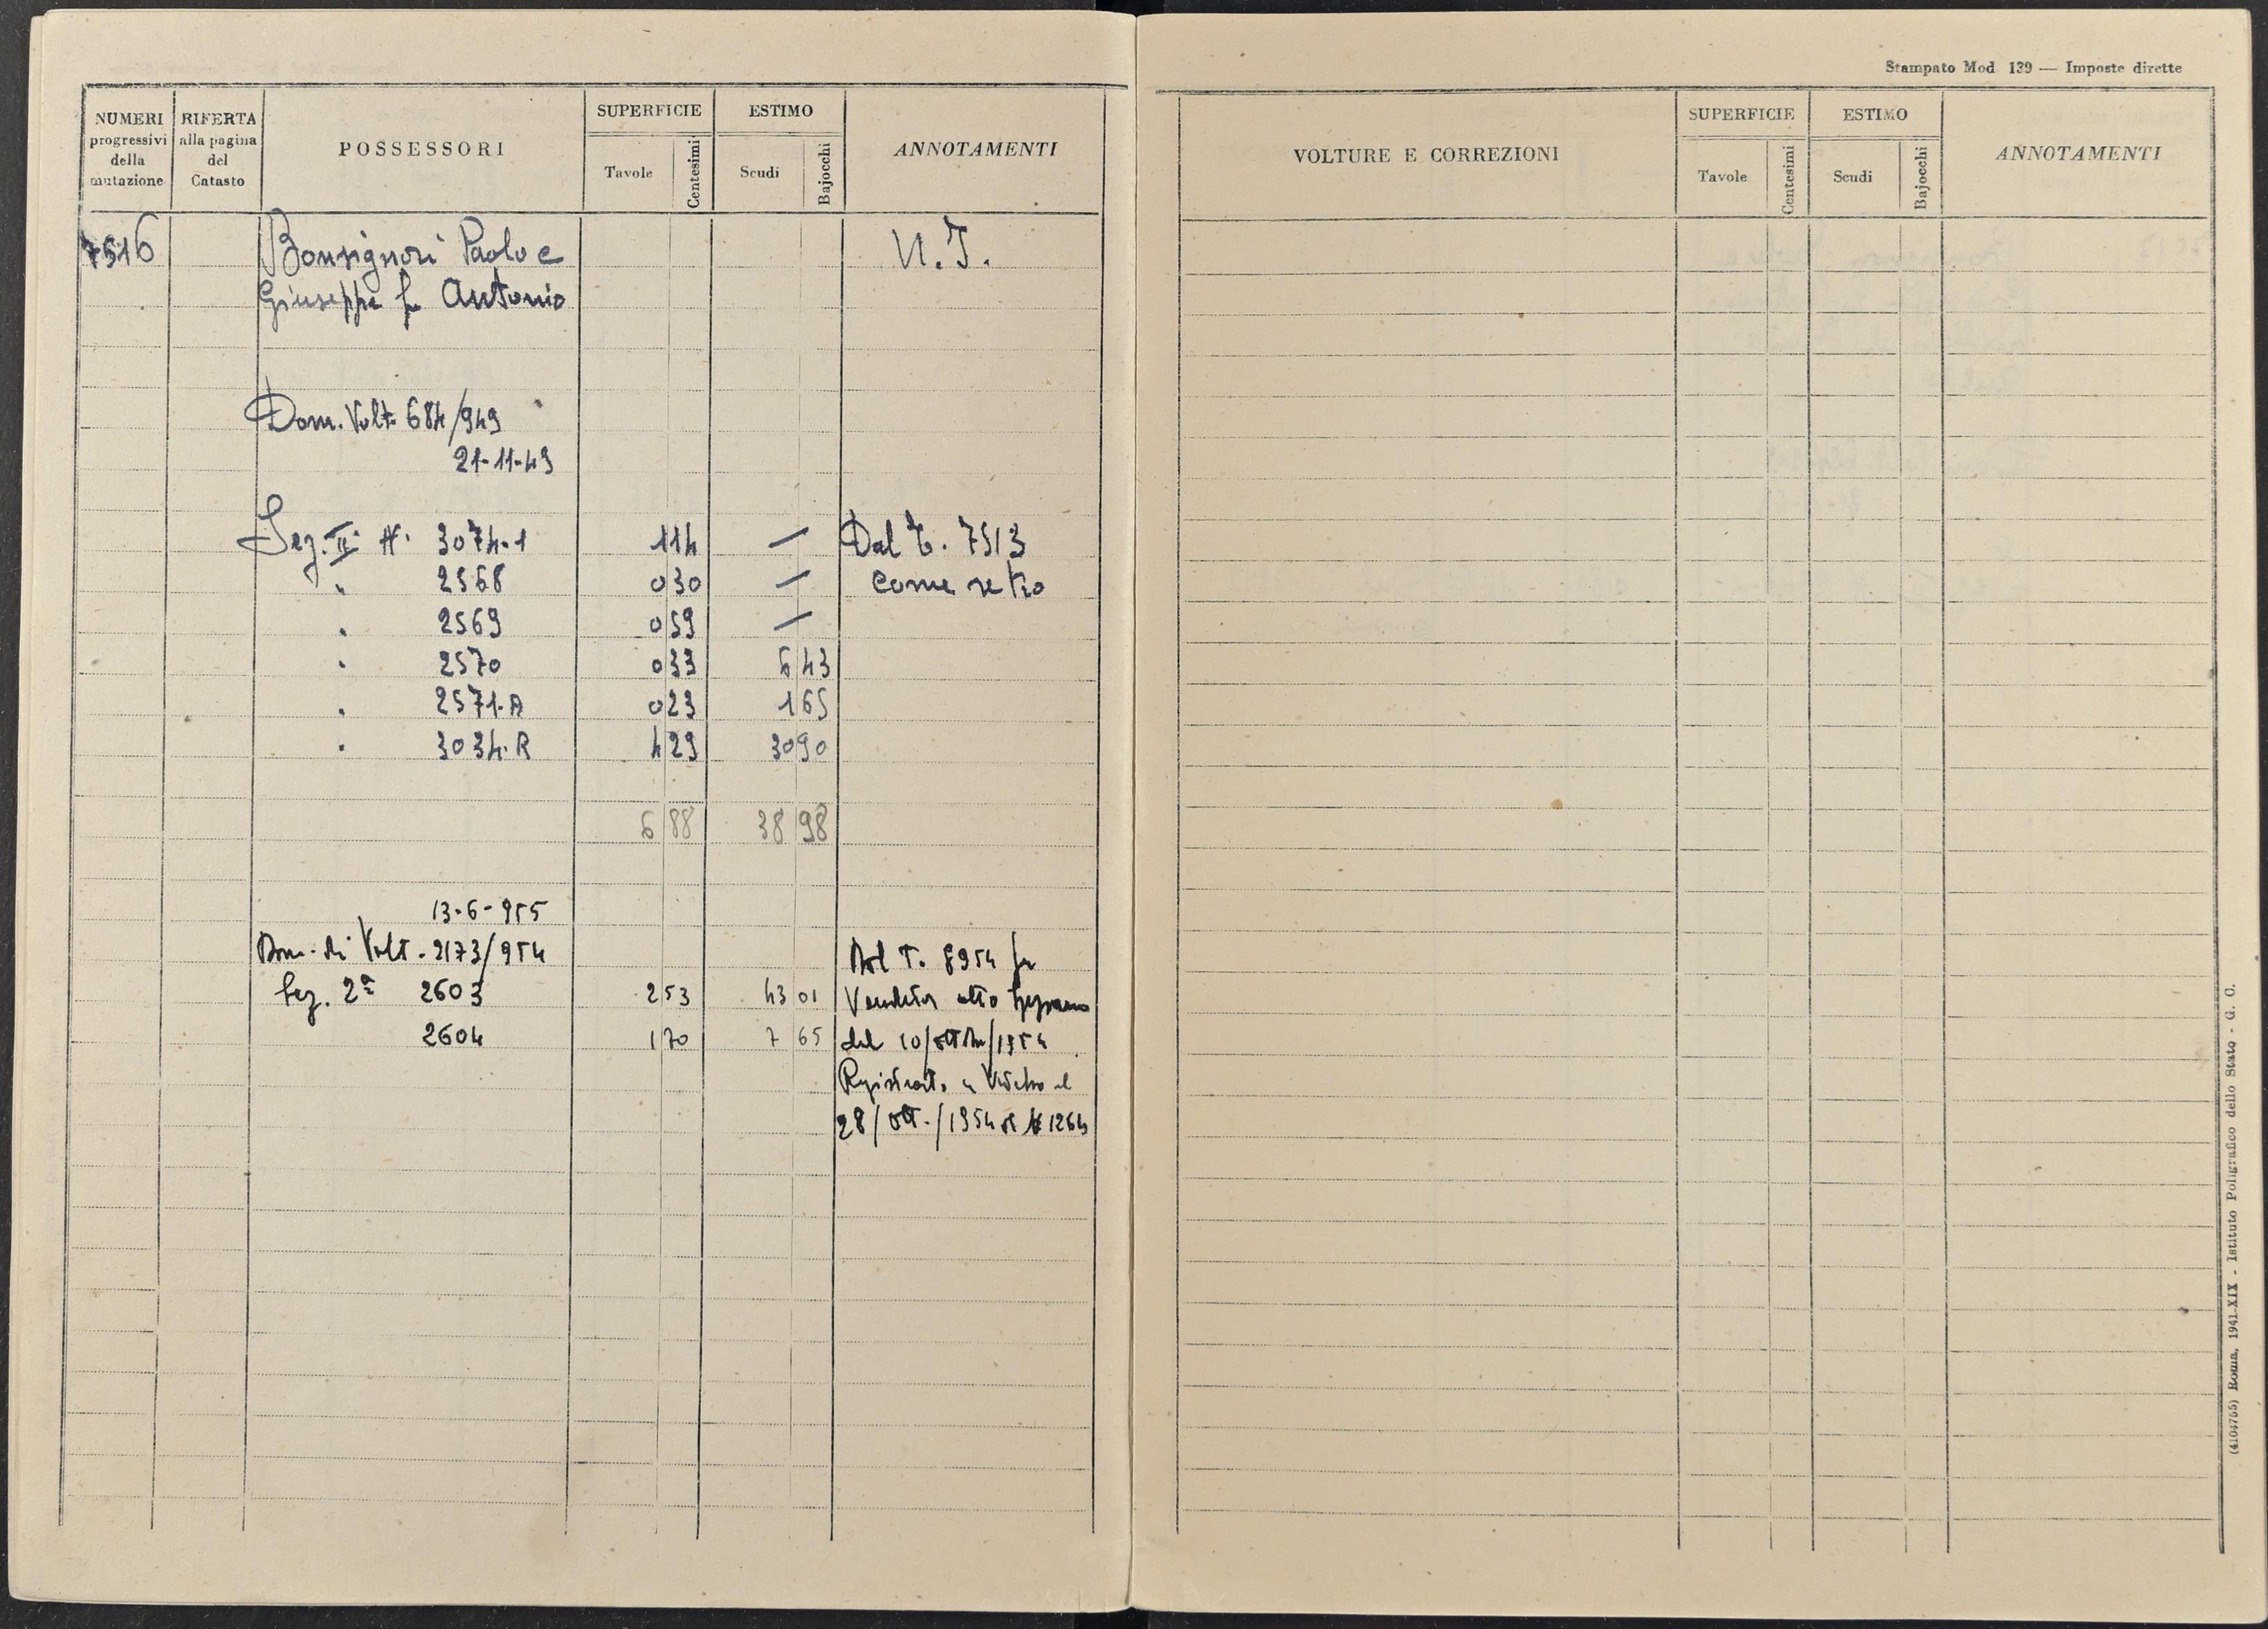 NUMERI progressivi della mutazione
RIFERTA alla pagina del Catasto
POSSESSORI
SUPERFICIE
Tavole
Centesimi
ESTIMO
Scudi
Bajocchi
ANNOTAMENTI
7516 Bonsignori Paolo e V.I.
Giuseppe fu Antonio
Dom. Volt. 684/949
21-11-49
Sez. II N. 3074-1 1 14 — Dal T. 7513
" 2568 0 30 — come retro
" 2569 0 59 —
" 2570 0 33 6 43
" 2571-A 0 23 1 65
" 3034-R 4 29 30 90
6 88 38 98
13-6-955
Dom. di Volt. 2173/954 Dal T. 8954 per
Sez. 2ª 2603 2 53 43 01 Vendita atto
2604 1 70 7 65 del 10/ottbr/1954
Registrato a il
28/ott./1954 al N 1264
Stampato Mod. 139 — Imposte dirette
VOLTURE E CORREZIONI
SUPERFICIE
Tavole
Centesimi
ESTIMO
Scudi
Bajocchi
ANNOTAMENTI
(4104755) Roma, 1941-XIX - Istituto Poligrafico dello Stato - G. C.